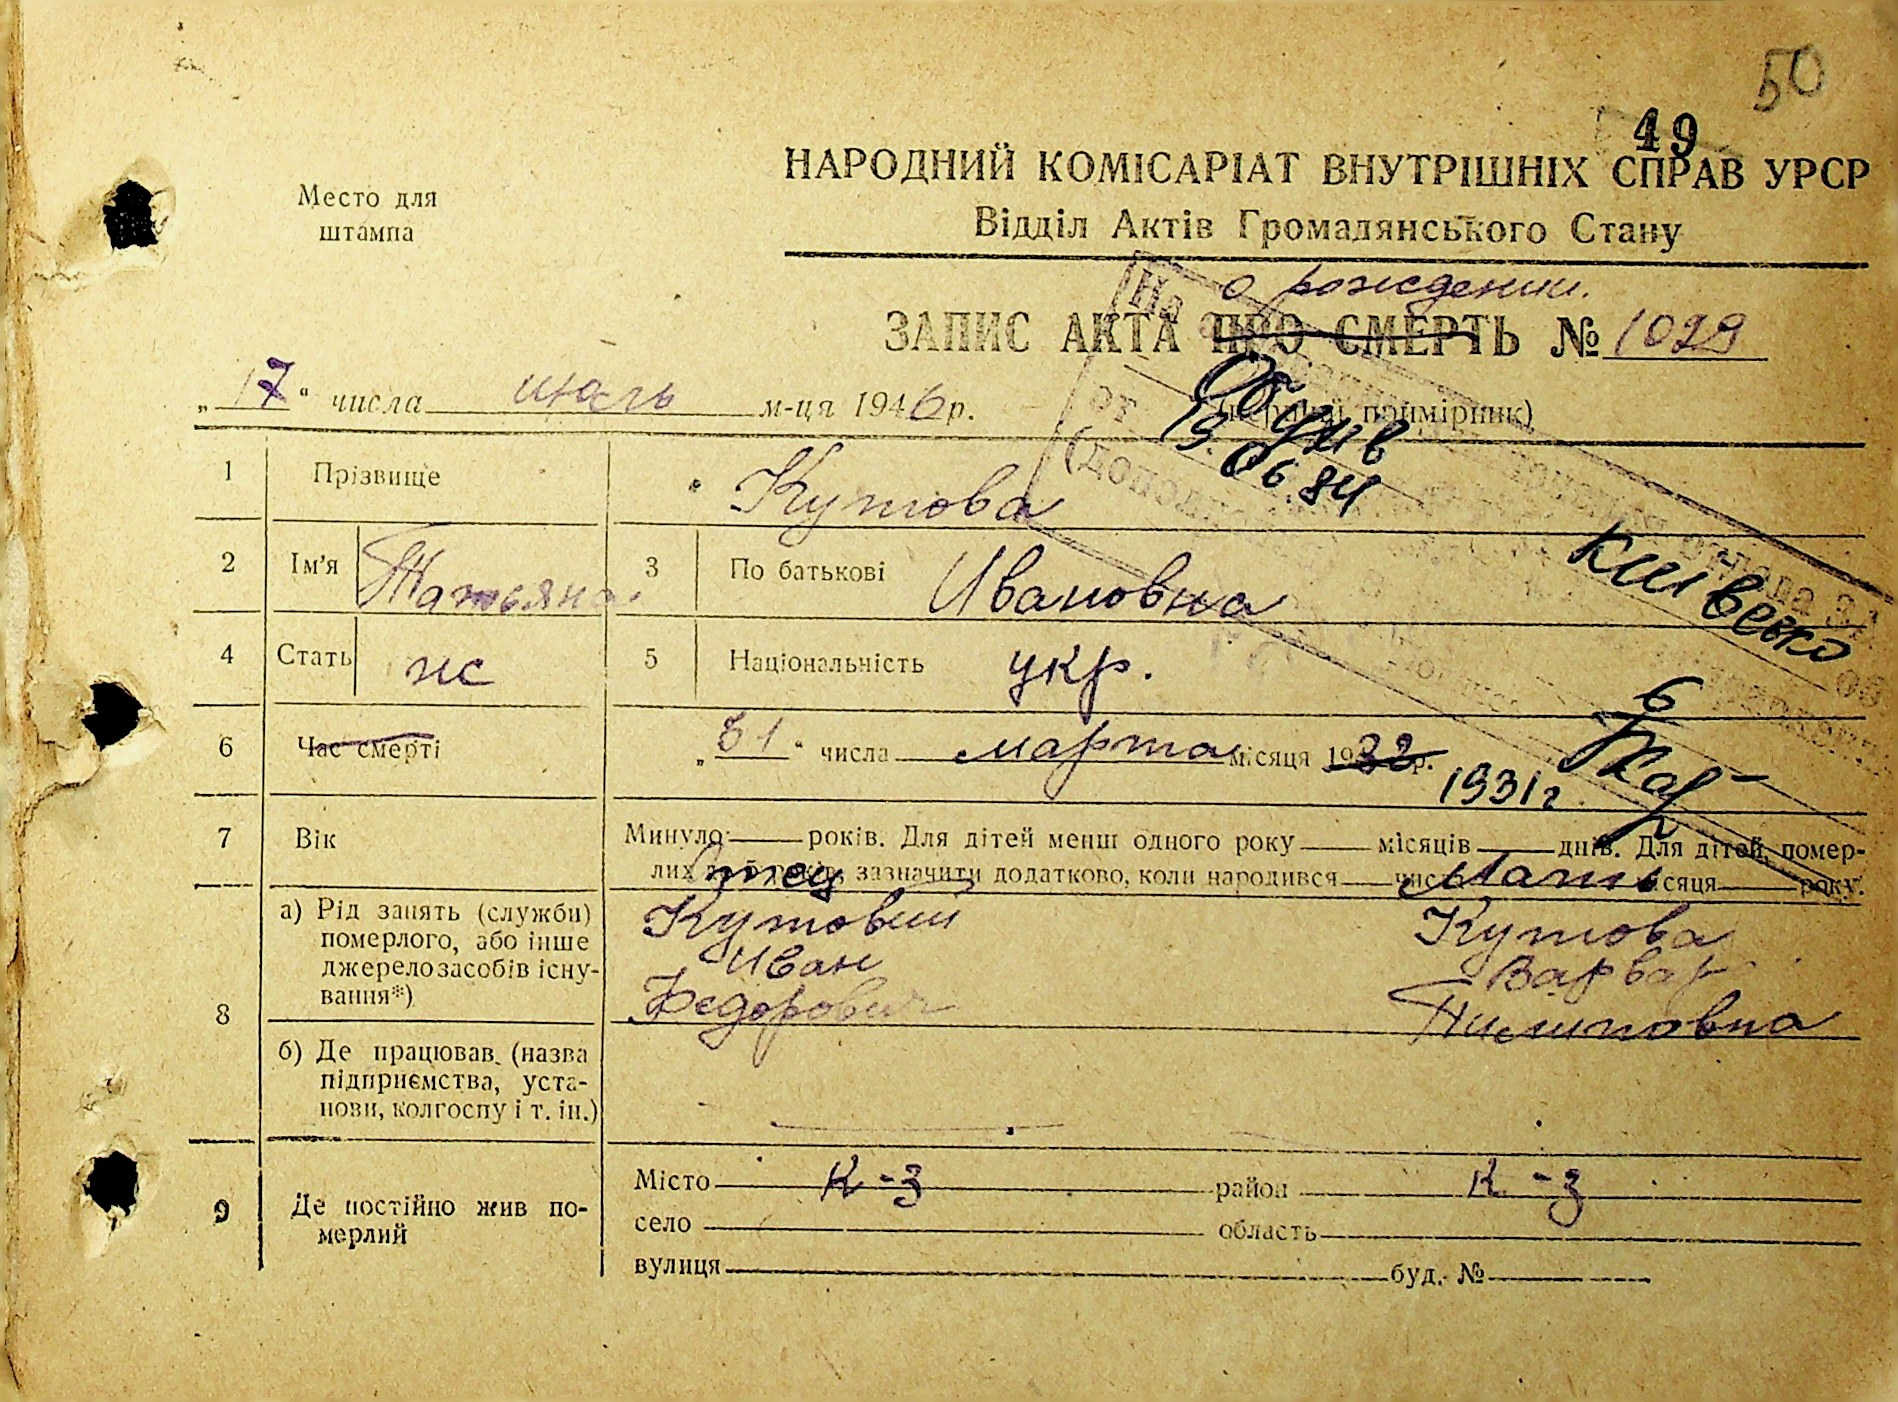 50
49
НАРОДНИЙ КОМІСАРІАТ ВНУТРІШНІХ СПРАВ УРСР
Место для
штампа
Відділ Актів Громадянського Стану
о рождении.
ЗАПИС АКТА ПРО СМЕРТЬ № 1029
„17“ числа июль м-ця 1946 р.
примірник)
13.06.84
1 Прізвище Кутова
2 Ім'я Татьяна. 3 По батькові Ивановна
4 Стать ж 5 Національність укр.
6 Час смерті „31“ числа марта місяця 19 р.
1931 г
7 Вік Минуло — років. Для дітей менш одного року — місяців — днів. Для дітей, помер-
лих зазначити додатково, коли народився — місяця — року.
Отец Мать
8 а) Рід занять (служби)
померлого, або інше
джерело засобів існу-
вання*)
Кутовий Кутова
Иван Варвар
Федорович Пилиповна
б) Де працював (назва
підприємства, уста-
нови, колгоспу і т. ін.)
9 Де постійно жив по-
мерлий
Місто К-з район К-з
село область
вулиця буд. №